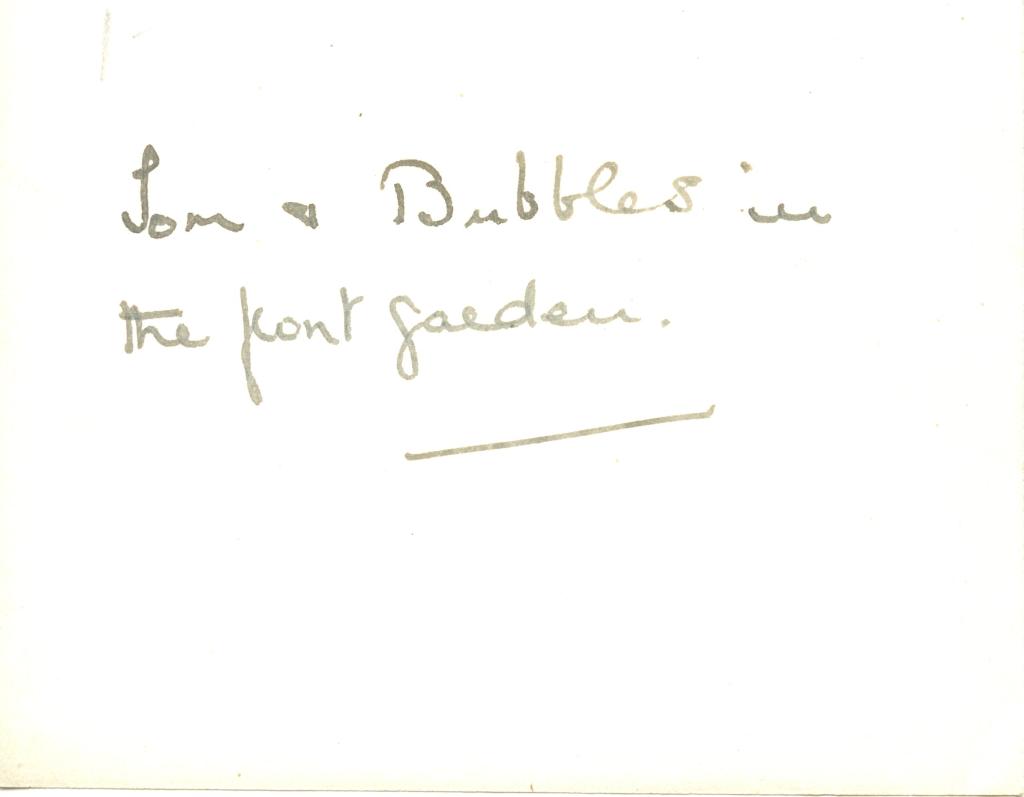 Tom & Bubbles in
the front garden.